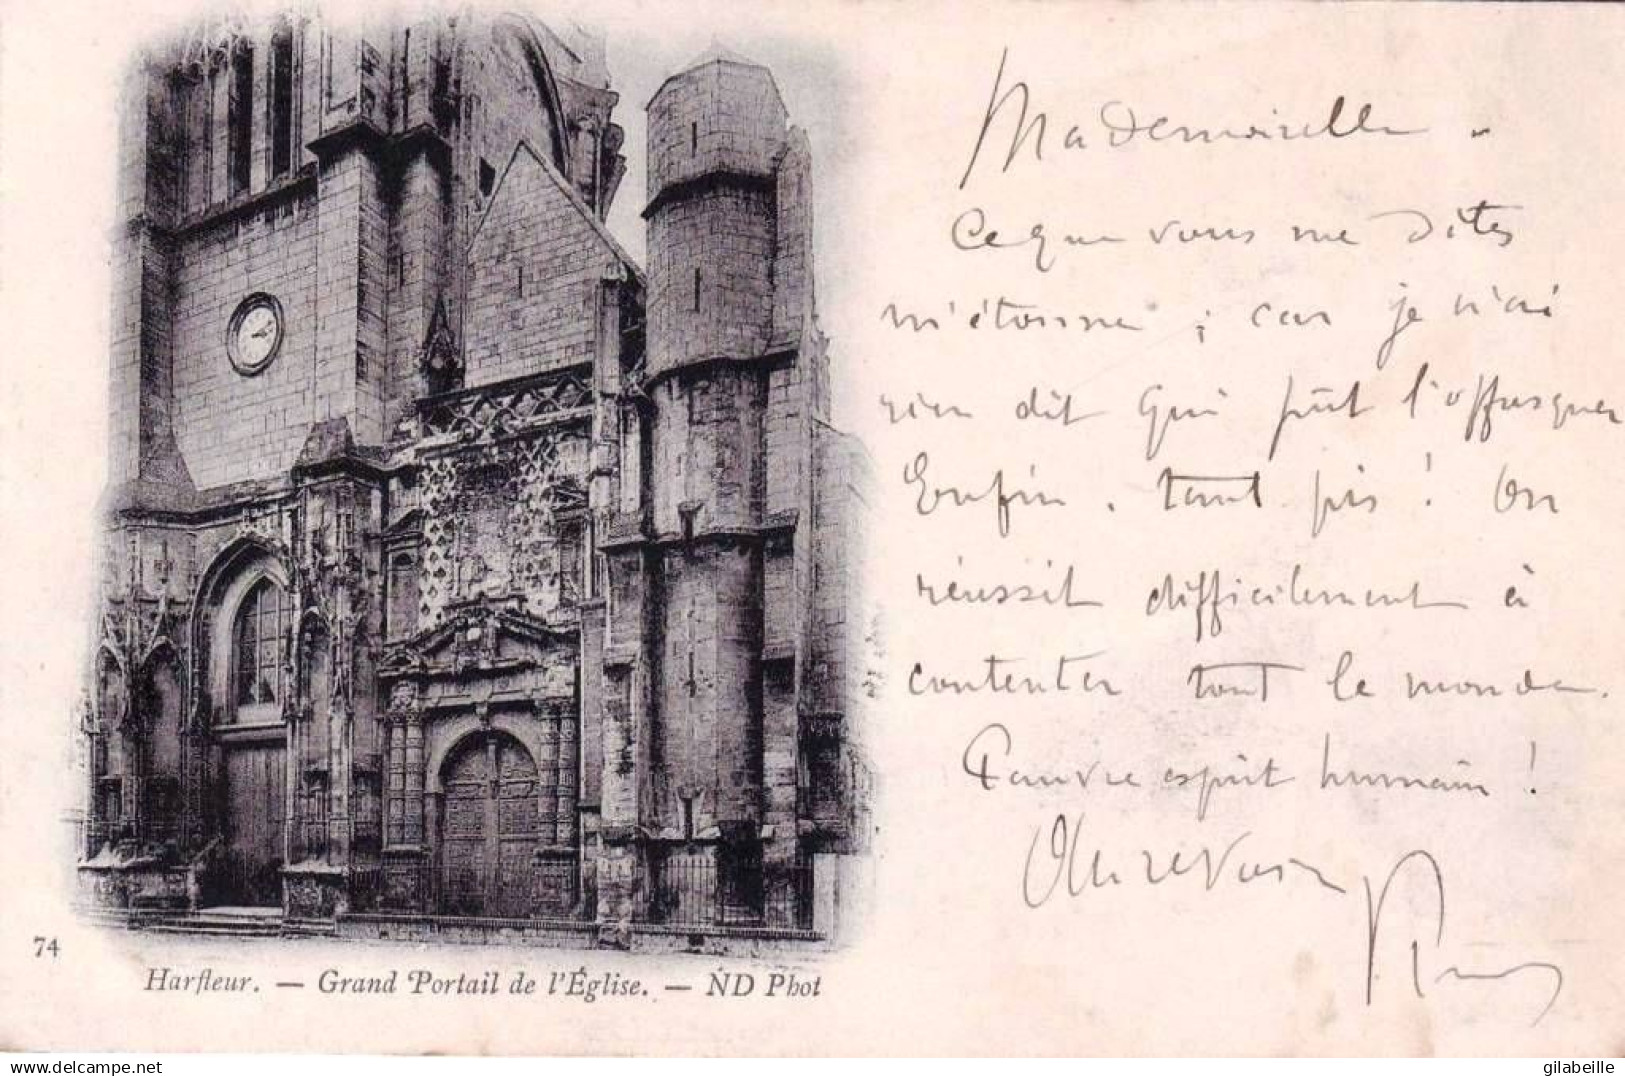 Mademoiselle
Ce que vous me dites
m'étonne ; car je n'ai
rien dit qui pût l'offusquer
Enfin, tant pis ! On
réussit difficilement à
contenter tout le monde.
Pauvre esprit humain !
Au revoir
74
Harfleur. — Grand Portail de l'Église. — ND Phot
gilabeille